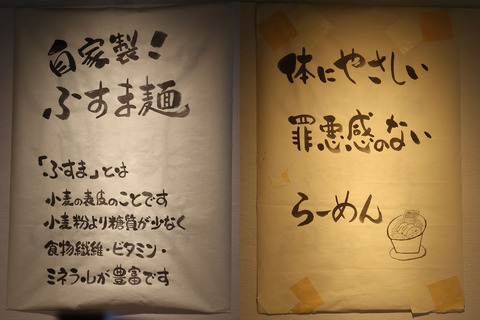 自家製!
ふすま麺
「ふすま」とは
小麦の表皮のことです
小麦粉より糖質が少なく
食物繊維・ビタミン・
ミネラルが豊富です
体にやさしい
罪悪感のない
らーめん